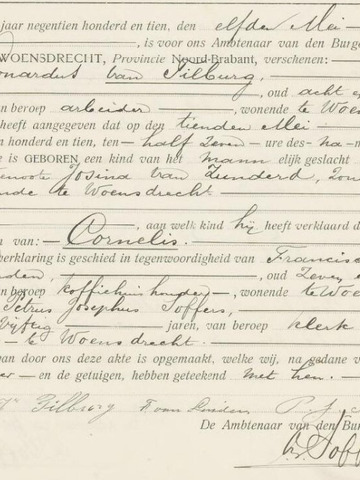 jaar negentien honderd en tien, den elfden Mei
, is voor ons Ambtenaar van den Burge
WOENSDRECHT, Provincie Noord-Brabant, verschenen:
onardus van Tilburg,
, oud acht e
n beroep arbeider, wonende te Woen
heeft aangegeven dat op den tienden Mei
n honderd en tien, ten half zeven ure des na mi
e is GEBOREN een kind van het mann elijk geslacht
enoote Josina van Zunderd, zon
nde te Woensdrecht
, aan welk kind hij heeft verklaard d
n van: Cornelis.
verklaring is geschied in tegenwoordigheid van Francisc
nden, , oud zeven e
an beroep koffiehuishouder, wonende te Wo
Petrus Josephus Soffers,
vijftig jaren, van beroep klerk
te Woensdrecht.
aan door ons deze akte is opgemaakt, welke wij, na gedane v
er en de getuigen, hebben geteekend met hen.
Tilburg F van Linden P. J.
De Ambtenaar van den Bur
Soff